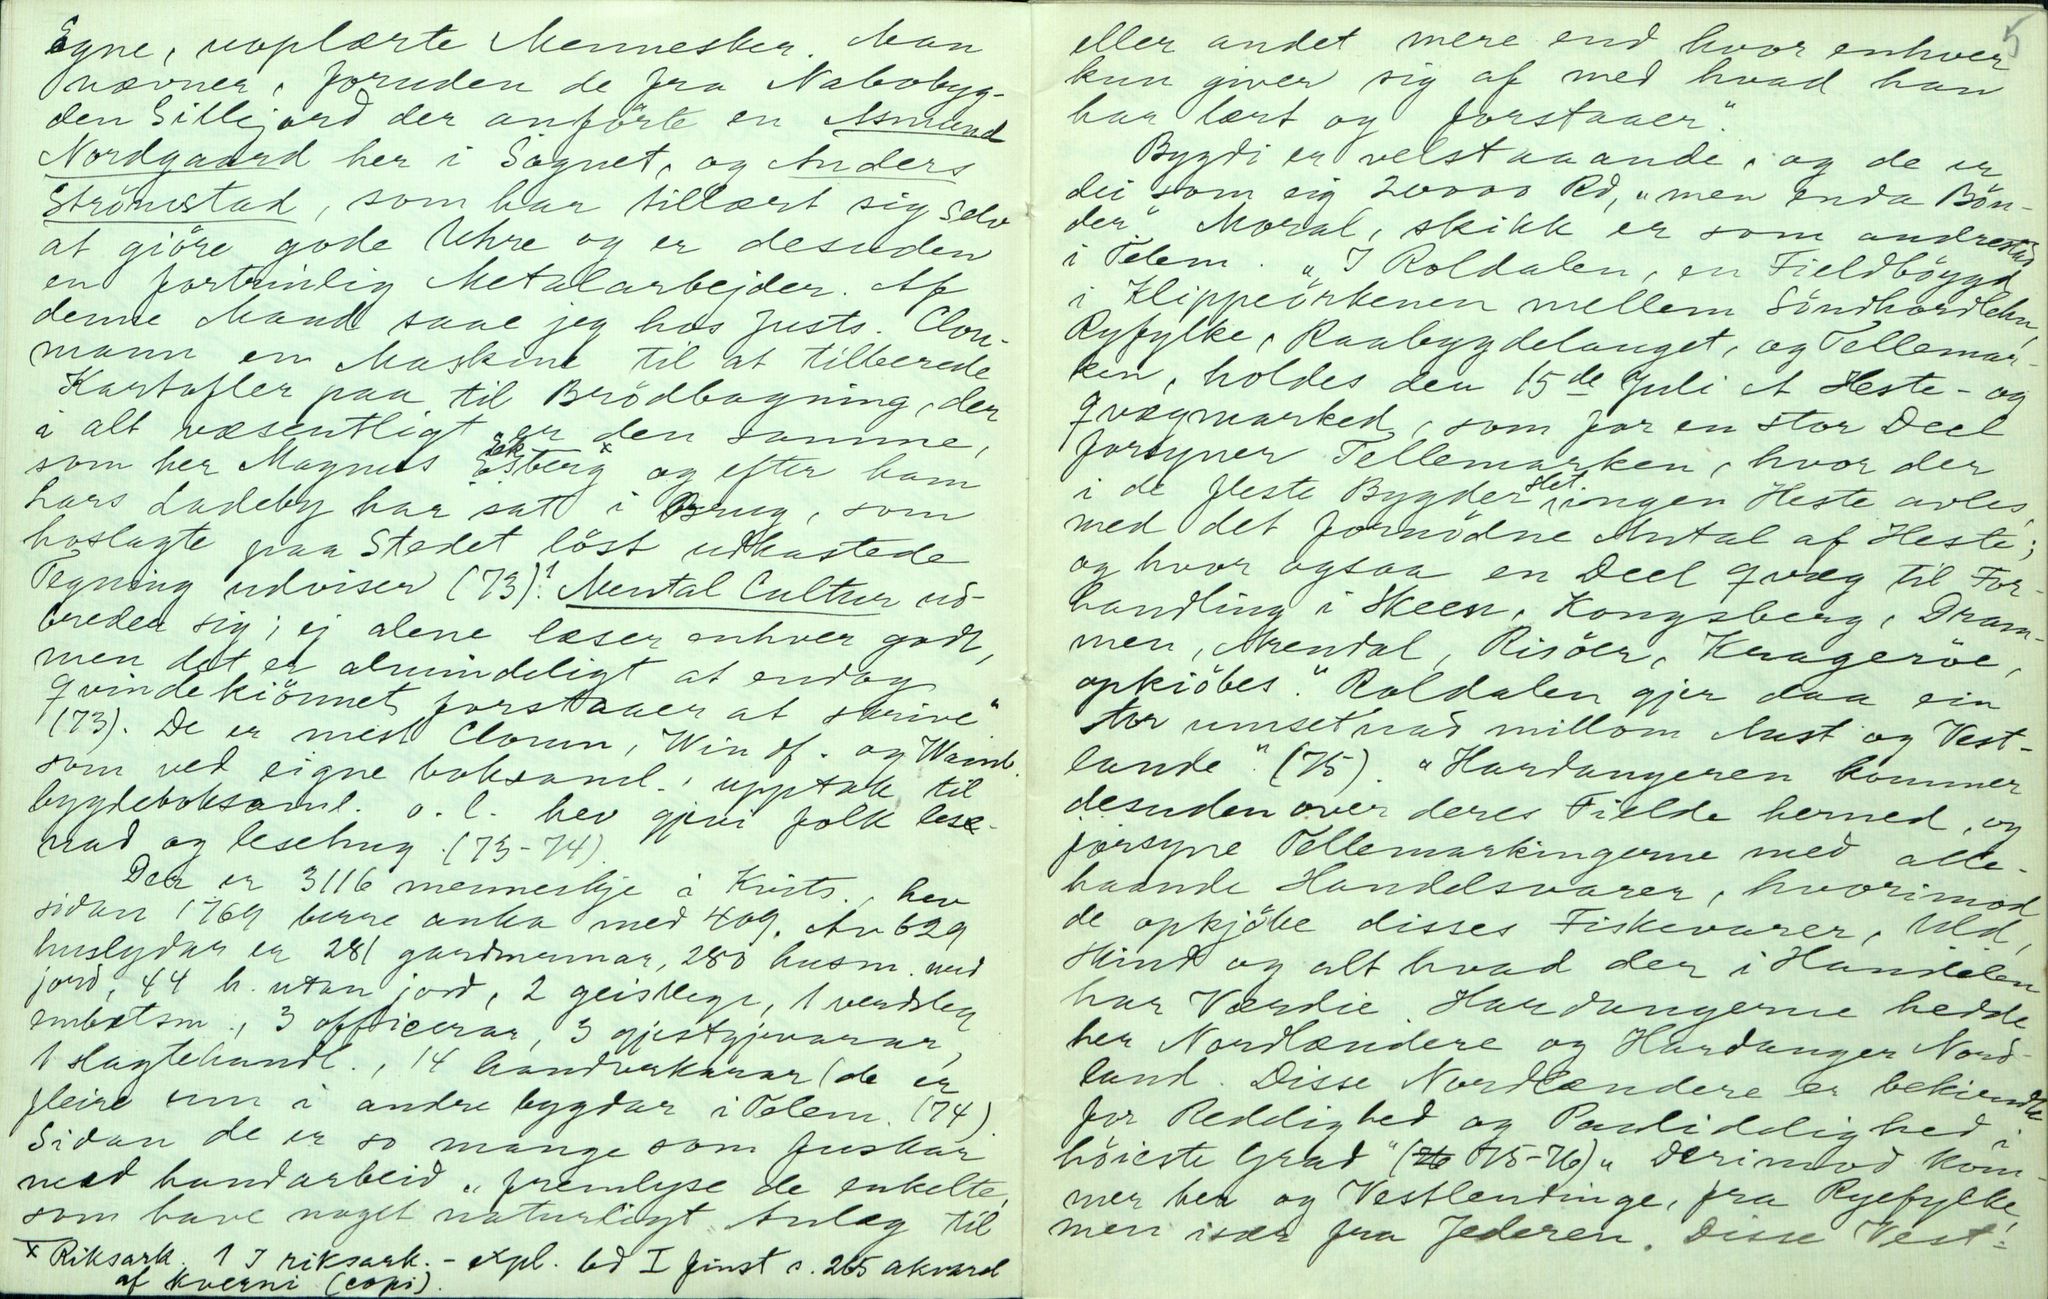 Egne, uoplærte Mennesker. Man
nævner, foruden de fra Nabobyg-
den Sillejord der anförte en Asmund
Nordgaard her i Sognet, og Anders
Strömstad, som har tillært sig Selv
at giöre gode Uhre og er desuden
en fortrinlig Metalarbejder. Af
denne Mand saae jeg hos Justs. Clou-
mann en Maskine til at tilberede
Kartofler paa til Brödbagning, der
i alt væsentligt er den samme,
som her Magnus Ekberg x og efter ham
Lars Ladeby har sat i Brug, som
hoslagte paa Stedet löst udkastede
Tegning udviser (73).1 Mental Cultur ud-
breder sig; ej alene læser enhver godt,
men det er almindeligt at endog
Qvindekiönnet forstaaer at skrive"
(73). De er mest Cloum, Winsf. og Wamb.
som ved eigne boksaml., upptak til
bygdeboksaml. o. l. hev gjevi folk lese-
nad og lesehug. (73-74)
Der er 3116 menneskje i Kvits., hev
sidan 1769 berre auka med 409. Av 629
huslydar er 281 gardmennar, 280 husm. med
jord, 44 h. utan jord, 2 geistlege, 1 verdsleg
embætsm., 3 officerar, 3 gjestgjevarar,
1 slagtehandl., 14 handverkarar (de er
fleire enn i andre bygdar i Telem. (74)
Sidan de er so mange som fuskar
med handarbeid, "fremlyse de enkelte,
som have noget naturligt Anlæg til
x Riksark. 1 I riksark. - expl. bd I finst s. 265 akvarel
af kverni (copi).
5
eller andet mere end hvor enhver
kun giver sig af med hvad han
har lært og forstaaer."
Bygdi er velstaaande, og de er
dei som eig 20000 Rd, "men enda Bön-
der". Moral, skikk er som andrestad
i Telem. "I Roldalen, en Fieldbögd
i Klippeörkenen mellem Söndhordlehn,
Ryfylke, Raabygdelauget, og Tellemar-
ken, holdes den 15de Juli et Heste- og
Qvægmarked, som for en stor Deel
forsyner Tellemarken, hvor der
i de fleste Bygder slet ingen Heste avles,
med det fornödne Antal af Heste;
og hvor ogsaa en Deel Qvæg til For-
handling i Skeen, Kongsberg, Dram-
men, Arendal, Risöer, Kragerőe,
opkiöbes." Roldalen gjer daa ein
stor umsetnad millom Aust og Vest-
lande". (75). "Hardangeren kommer
desuden over deres Fielde herned, og
forsyne Tellemarkingerne med alle-
haande Handelsvarer, hvorimod
de opkjöbe disses Fiskevarer, Uld,
Skind og alt hvad der i Handelen
har Værdie. Hardangerne hedde
her Nordlændere og Hardanger Nord-
land. Disse Nordlændere er bekiendte
for Redlighed og Paalidelighed i
höieste Grad" (75-76) "Derimod kom-
mer her og Vestlendinge, fra Ryefylke,
men især fra Jederen. Disse Vest-